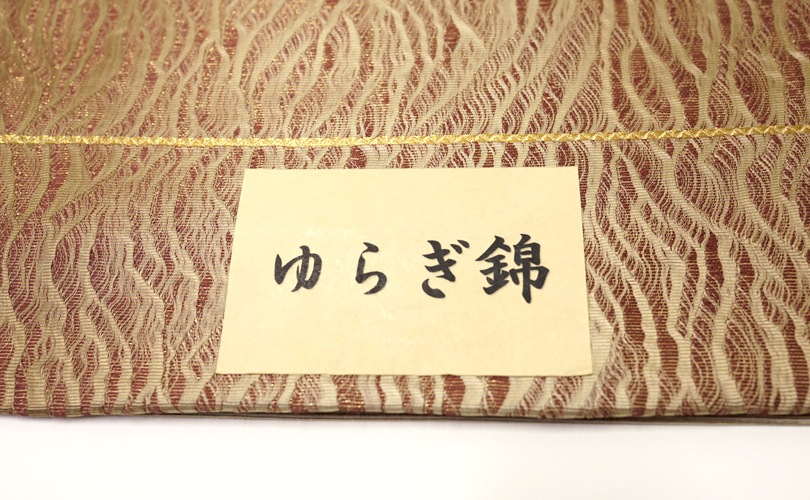 ゆらぎ錦